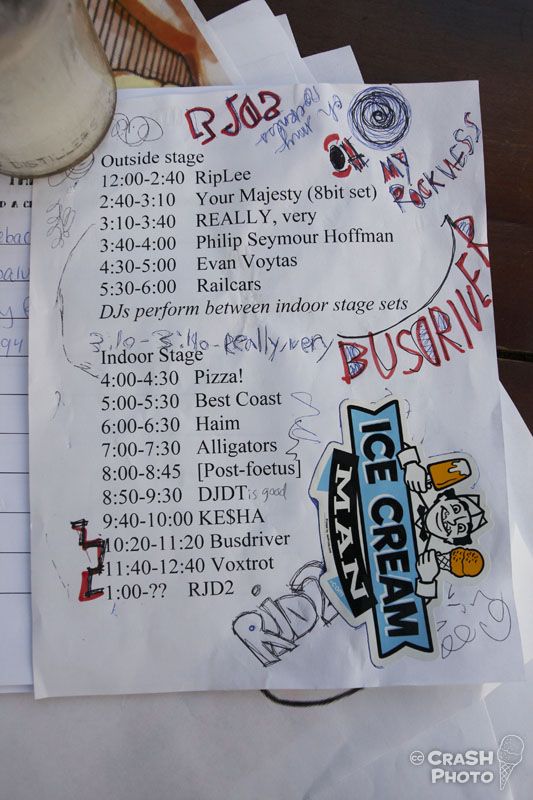 RJD2
Outside stage
12:00-2:40 RipLee
2:40-3:10 Your Majesty (8bit set)
3:10-3:40 REALLY, very
3:40-4:00 Philip Seymour Hoffman
4:30-5:00 Evan Voytas
5:30-6:00 Railcars
DJs perform between indoor stage sets
3:10-3:40-Really,very
Indoor Stage
4:00-4:30 Pizza!
5:00-5:30 Best Coast
6:00-6:30 Haim
7:00-7:30 Alligators
8:00-8:45 [Post-foetus]
8:50-9:30 DJDT is good
9:40-10:00 KE$HA
10:20-11:20 Busdriver
11:40-12:40 Voxtrot
1:00-?? RJD2
ROCKNESS
BUSDRIVER
ICE CREAM
MAN
.com
RJD2
cc CRASH
PHOTO